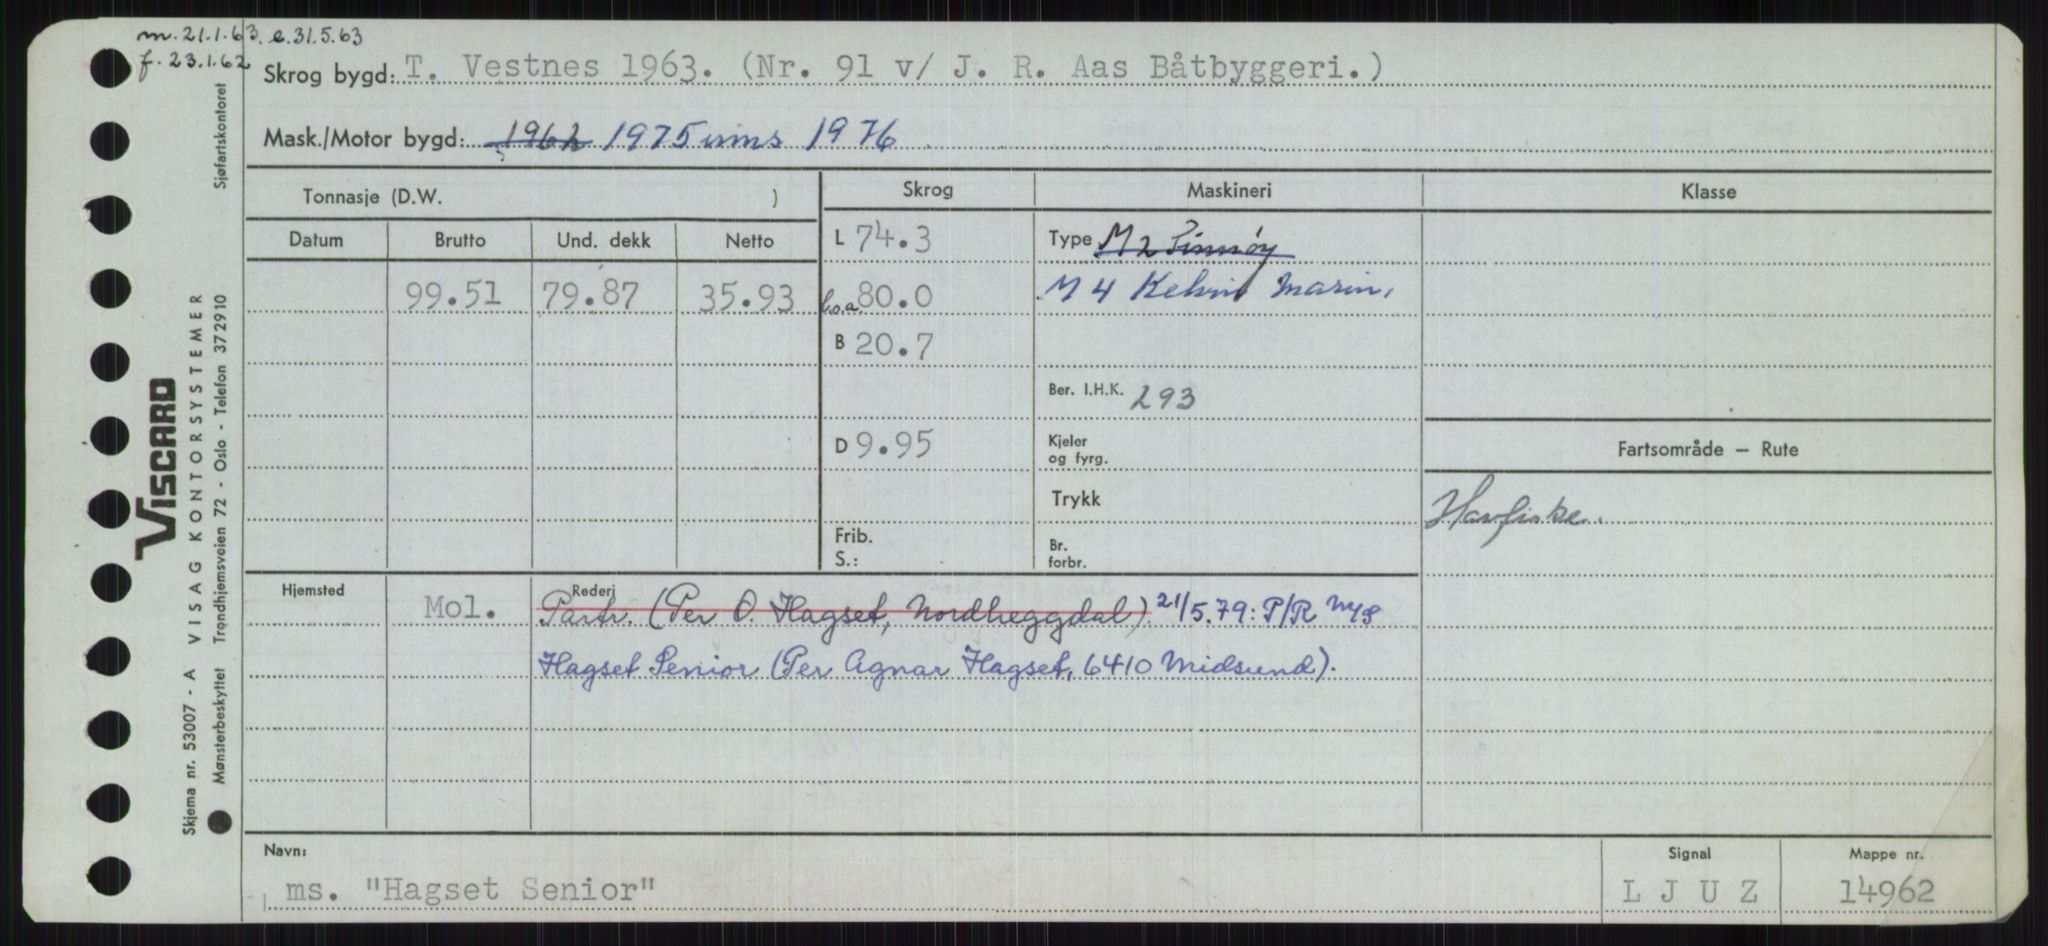 m. 21.1.63. e. 31.5.63
f. 23.1.62
Skrog bygd: T. Vestnes 1963. (Nr. 91 v/ J. R. Aas Båtbyggeri.)
Mask./Motor bygd: 1962 1975 inns 1976
Tonnasje (D.W. )
Skrog
Maskineri
Klasse
Datum Brutto Und. dekk Netto
99.51 79.87 35.93
L 74.3
l.o.a. 80.0
B 20.7
D 9.95
Frib.
S.:
Type M 2
M 4 Kelvin Marin.
Ber. I.H.K. 293
Kjeler
og fyrg.
Trykk
Br.
forbr.
Fartsområde — Rute
Havfiske.
Hjemsted
Mol.
Rederi
Partr. (Per O. Hagset, Nordheggdal). 21/5.79: P/R M/S
Hagset Senior (Per Agnar Hagset, 6410 Midsund).
Navn:
ms. "Hagset Senior"
Signal
L J U Z
Mappe nr.
14962
VISCARD
Skjema nr. 53007 - A VISAG KONTORSYSTEMER
Mønsterbeskyttet Trondhjemsveien 72 - Oslo - Telefon 372910 Sjøfartskontoret